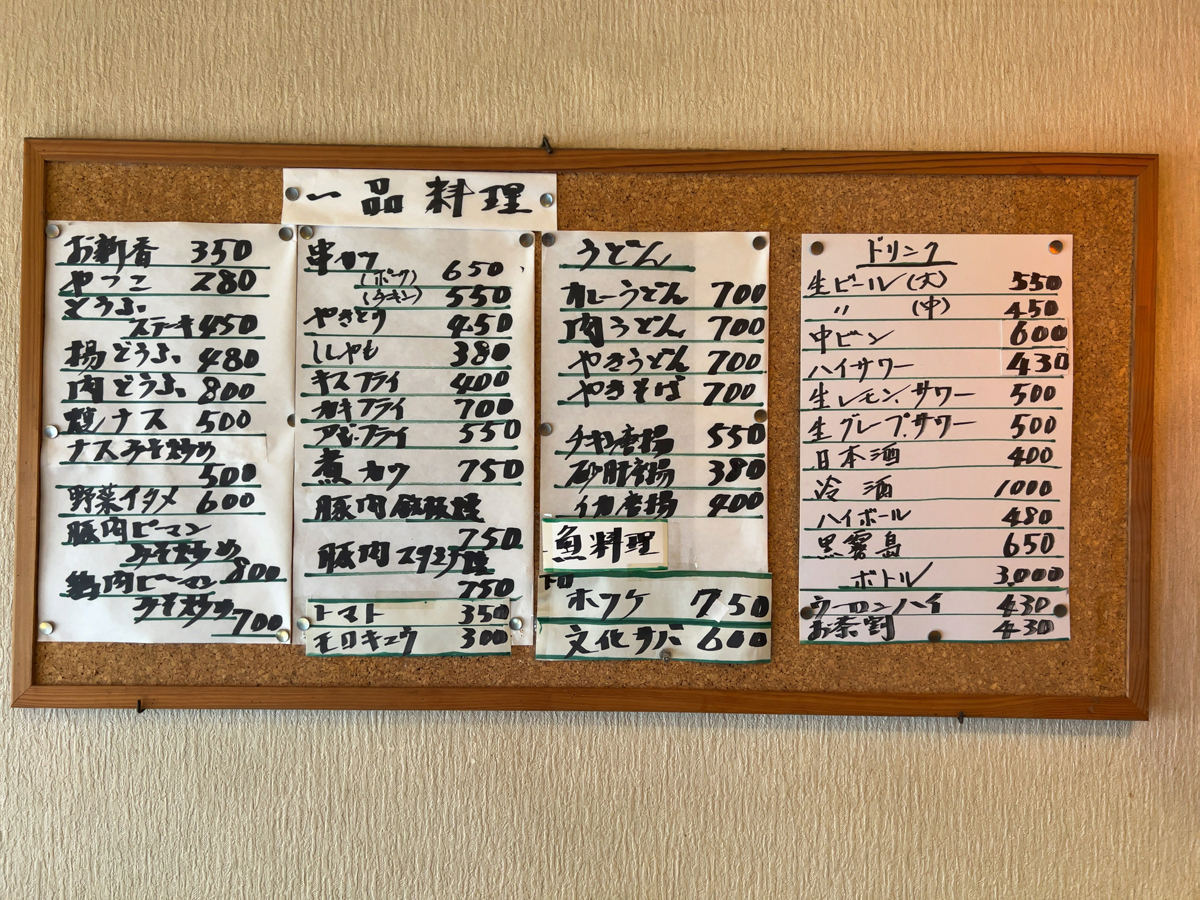 一品料理
お新香 350
やっこ 280
とうふ
ステーキ 450
揚どうふ 480
肉どうふ 800
ナス 500
ナスみそ炒め
500
野菜イタメ 600
豚肉ピーマン
みそ炒め 800
鶏肉ピーマン
みそ炒め 700
串カツ
(ポーク) 650
(チキン) 550
やきとり 450
ししゃも 380
キスフライ 400
カキフライ 700
アジフライ 550
煮カツ 750
豚肉鉄板焼
750
豚肉スタミナ焼
750
トマト 350
モロキュウ 300
うどん
カレーうどん 700
肉うどん 700
やきうどん 700
やきそば 700
チキン唐揚 550
砂肝唐揚 380
イカ唐揚 400
魚料理
ホッケ 750
文化サバ 600
ドリンク
生ビール(大) 550
〃 (中) 450
中ビン 600
ハイサワー 430
生レモン.サワー 500
生グレープ.サワー 500
日本酒 400
冷酒 1000
ハイボール 480
黒霧島 650
ボトル 3,000
ウーロンハイ 430
お茶割 430